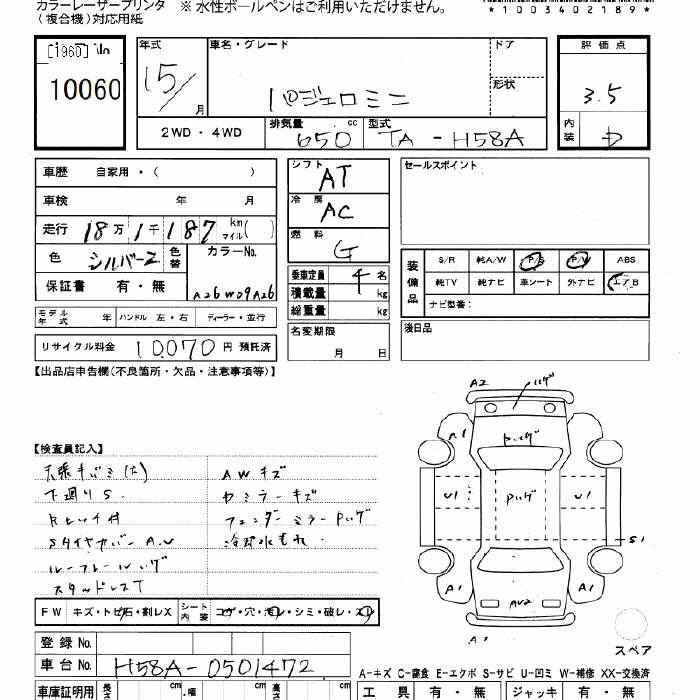 カラーレーザープリンタ ※ 水性ボールペンはご利用いただけません。
(複合機)対応用紙
*1003402189*
[1960]
10060
年式 車名・グレード ドア 評価点
15/ 月 パジェロミニ 形状 3.5
2WD・4WD 排気量 650 cc 型式 TA-H58A 内装 D
車歴 自家用・( )
車検 年 月
走行 18万1千187 km マイル( )
色 シルバー2 色替 カラーNo.
保証書 有・無 A26W09A26
モデル年式 年 ハンドル 左・右 ディーラー・並行
リサイクル料金 10070円 預託済
シフト AT
冷房 AC
燃料 G
乗車定員 4 名
積載量 kg
総重量 kg
名変期限
月 日
セールスポイント
装備品 S/R 純A/W P/S P/W ABS
純TV 純ナビ 革シート 外ナビ エアB
ナビ型番:
後日品
【出品店申告欄(不良箇所・欠品・注意事項等)】
【検査員記入】
下廻りS AWキズ
Sタイヤカバー A.U フェンダーミラー
スタッドレスT 冷却水もれ
FW キズ・トビ石・割レX シート内装 コゲ・穴・汚レ・シミ・破レ・スレ
A2
A1
U1 U1
S1
A1 A1
AU2
スペア
登録No.
車台No. H58A-0501472
A-キズ C-腐食 E-エクボ S-サビ U-凹ミ W-補修 XX-交換済
車庫証明用 長さ cm 幅 cm 高さ cm 工具 有・無 ジャッキ 有・無